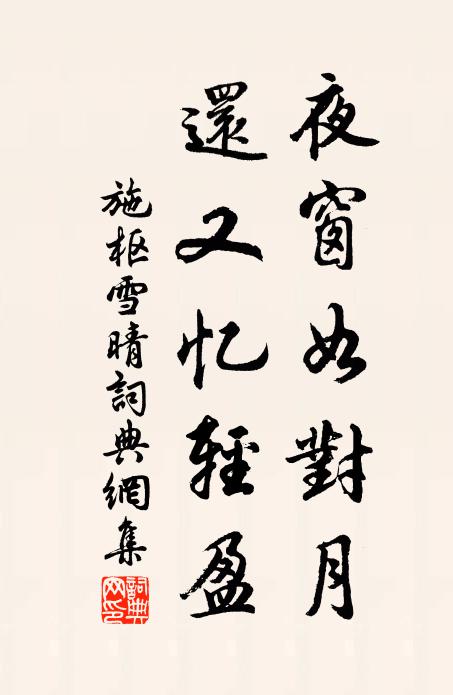 夜窗如對月
還又忆輕盈
施枢雪晴詞典網集
詞典网印